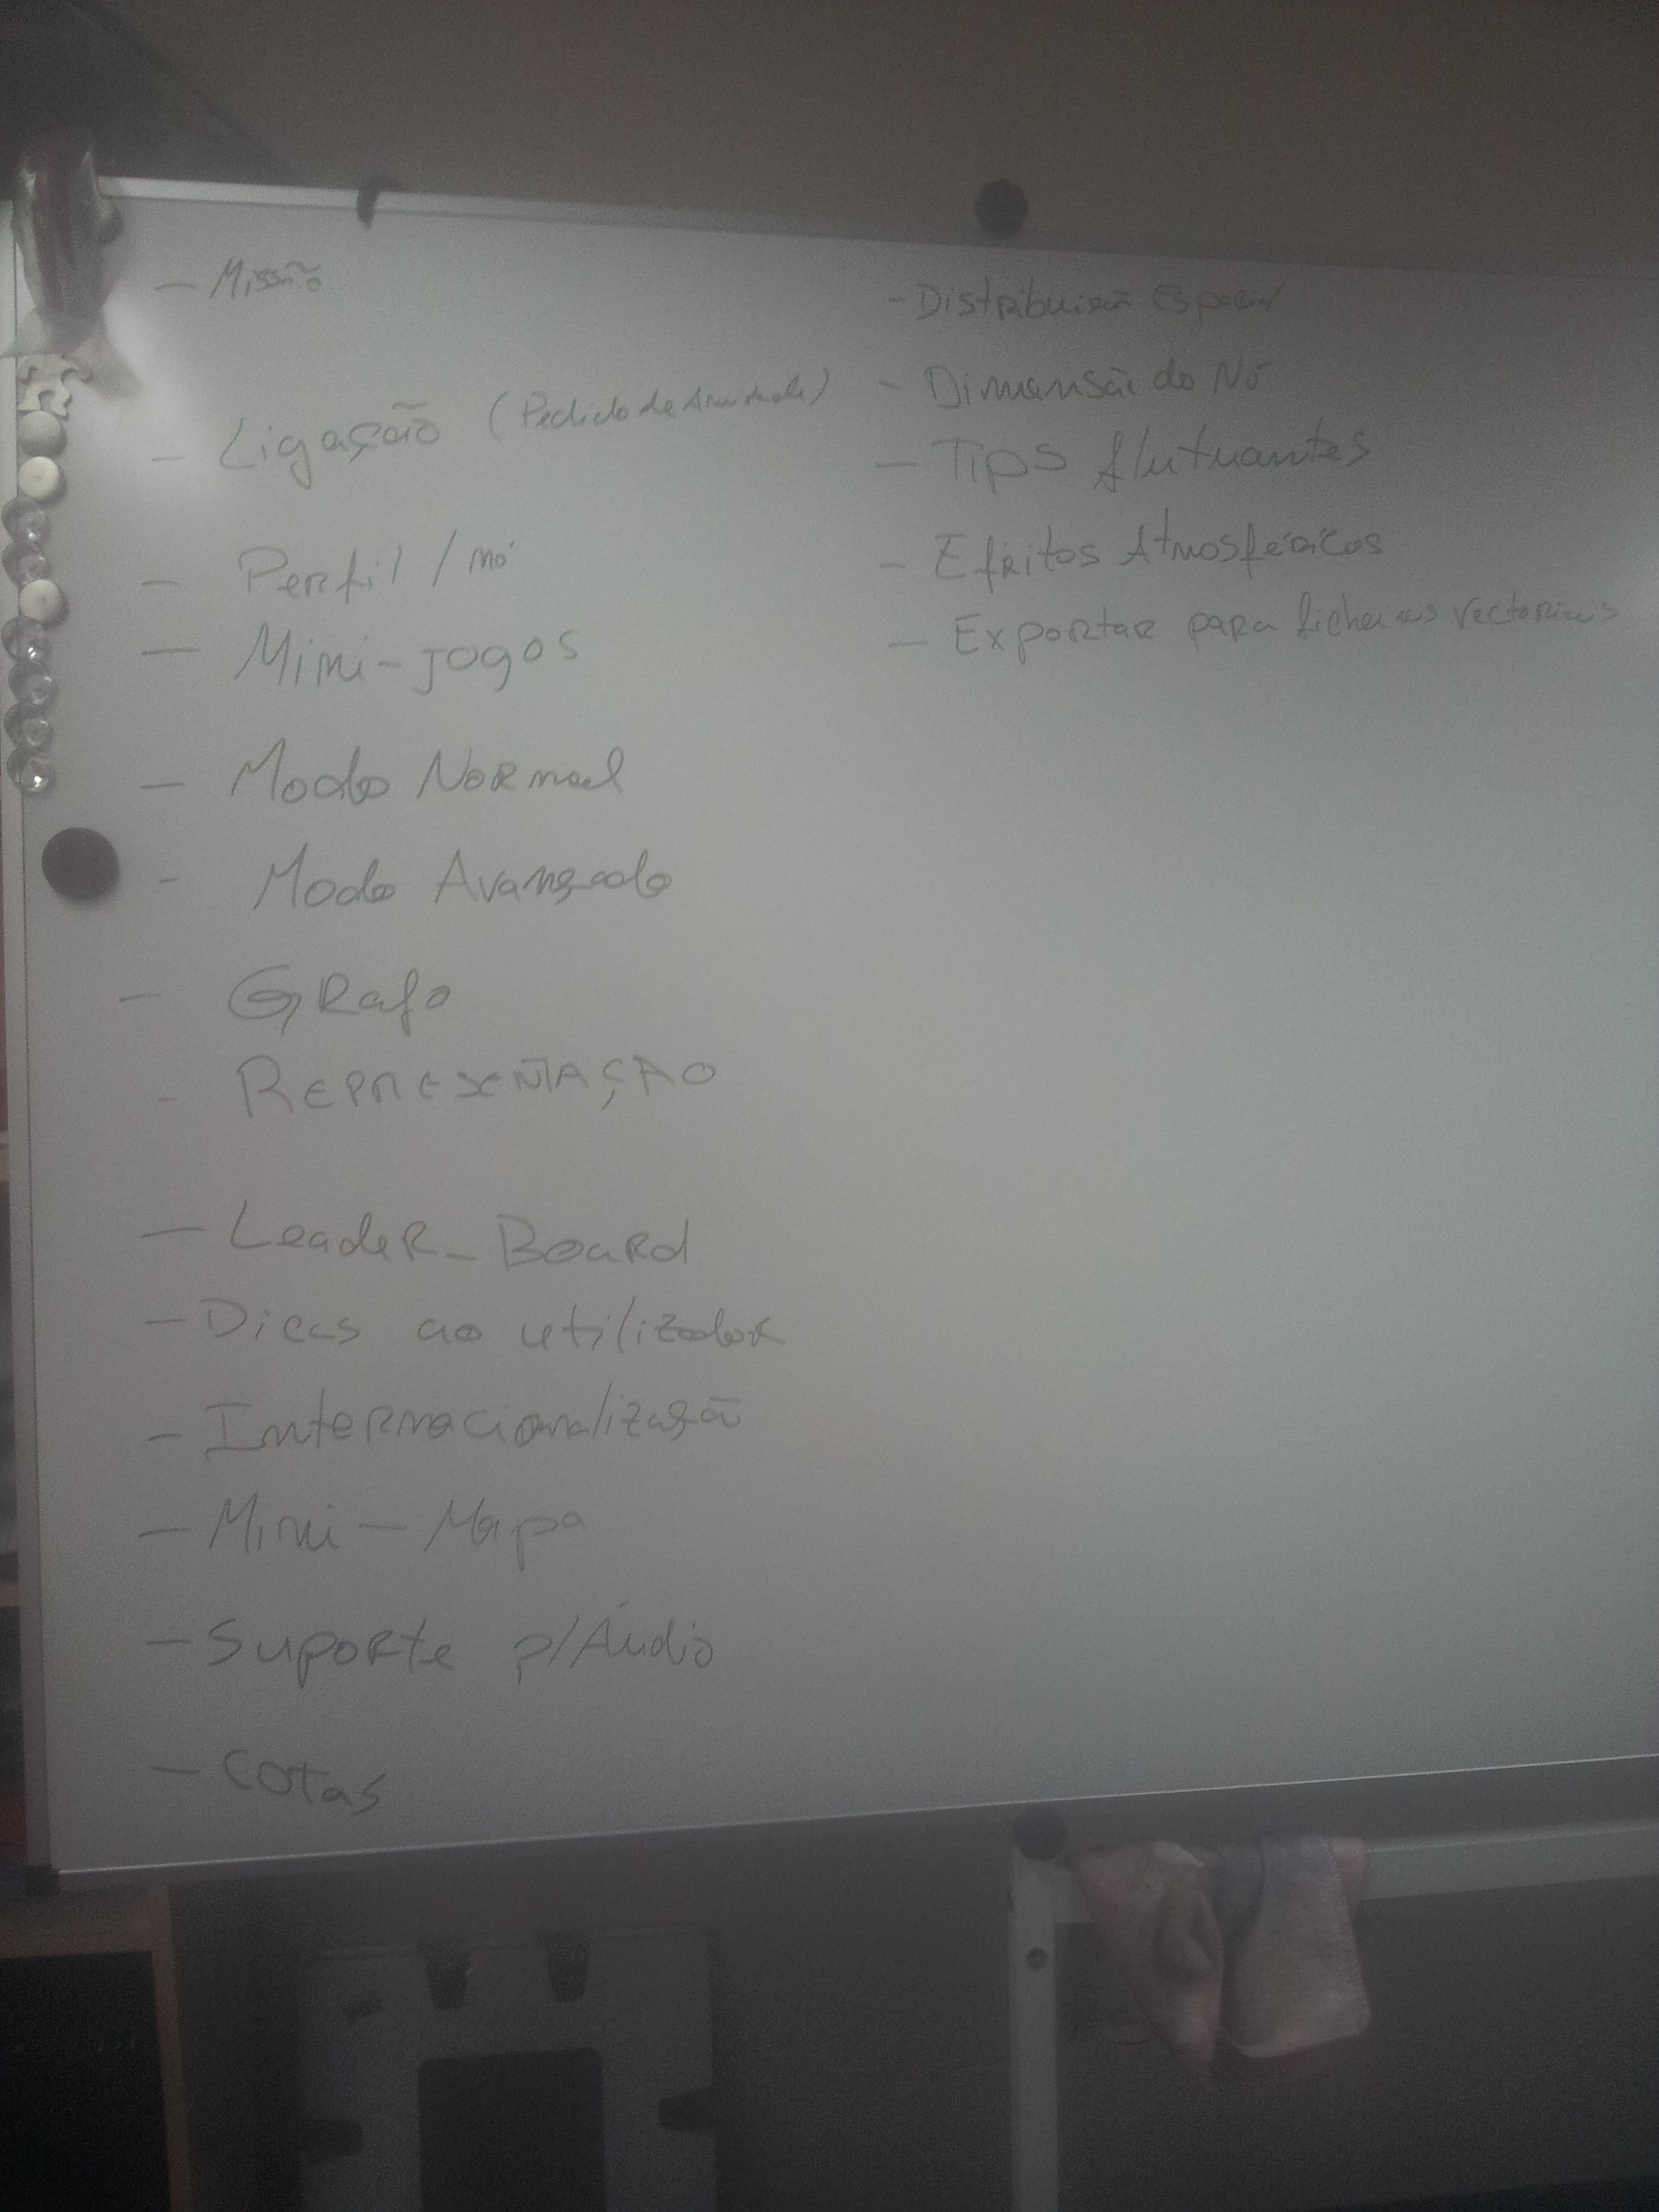 - Missão
- Ligação (Pedido de Amizade)
- Perfil / nó
- Mini-jogos
- Modo Normal
- Modo Avançado
- Grafo
- REPRESENTAÇÃO
- Leader-Board
- Dicas ao utilizador
- Internacionalização
- Mini-Mapa
- Suporte p/Áudio
- Cotas
- Distribuição Espacial
- Dimensão do Nó
- Tips flutuantes
- Efeitos Atmosféricos
- Exportar para ficheiros vectoriais